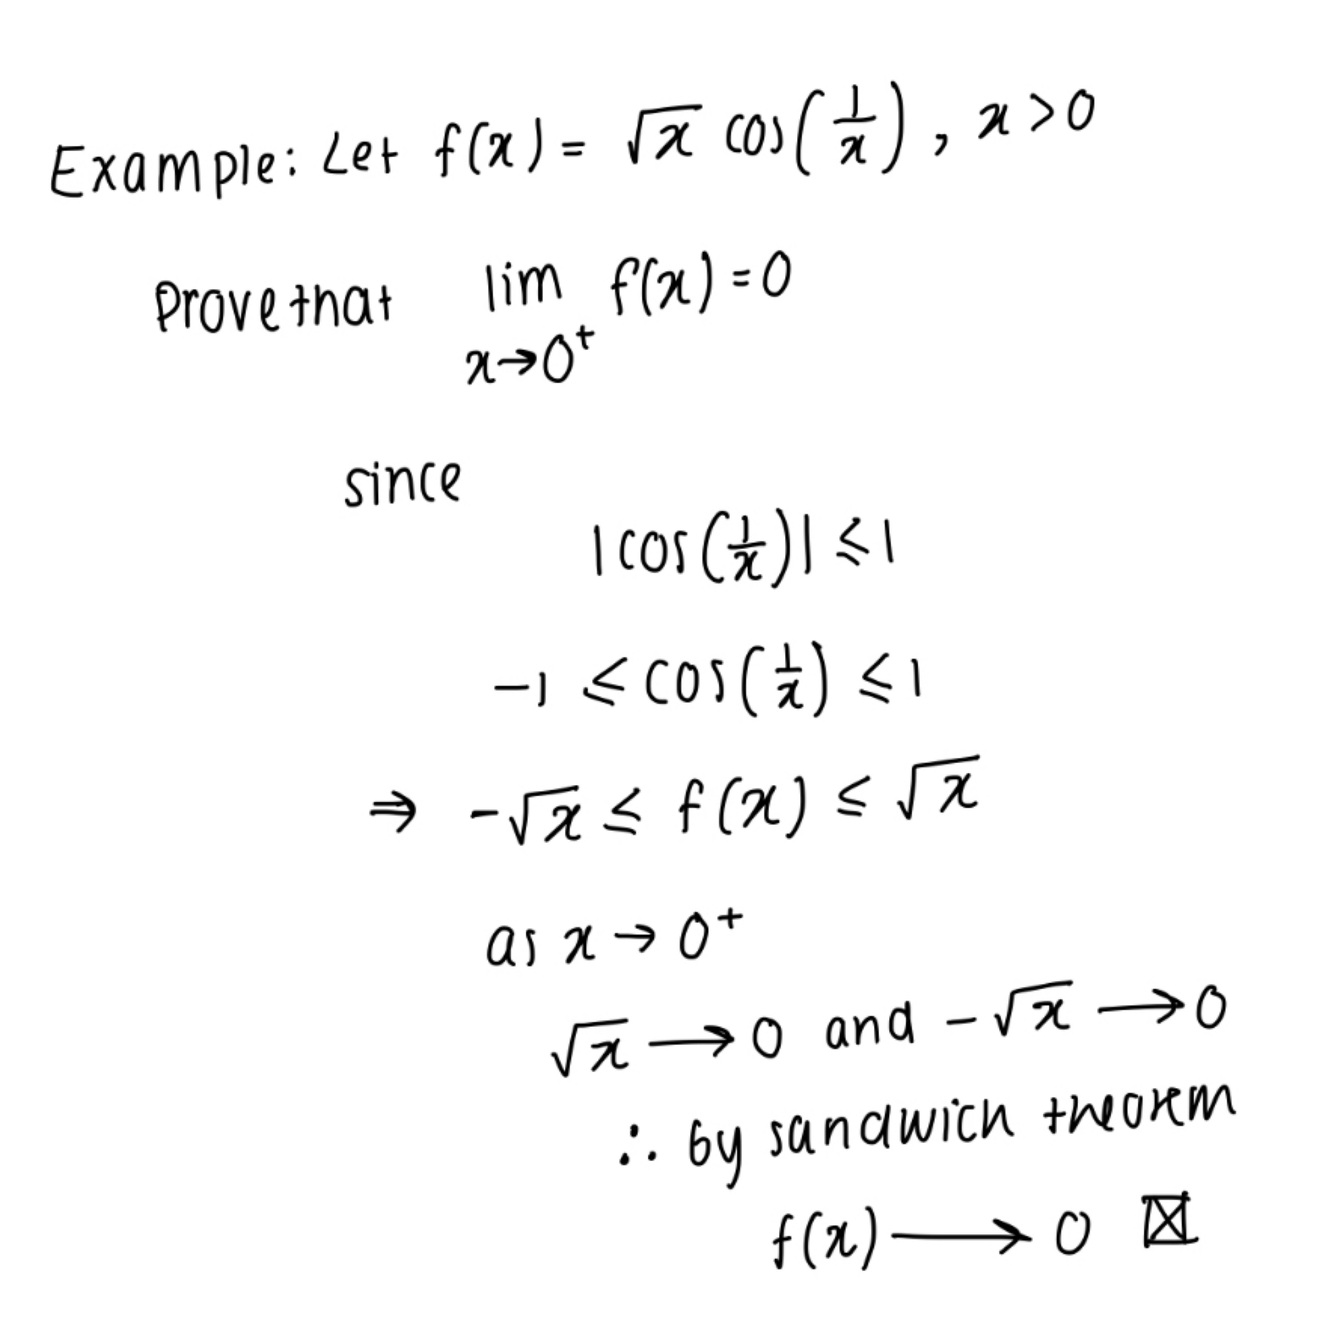 Example: Let f(x) = √x cos(1/x), x>0
Prove that lim f(x) = 0
x→0⁺
since
|cos(1/x)| ⩽ 1
-1 ⩽ cos(1/x) ⩽ 1
⇒ -√x ≤ f(x) ≤ √x
as x → 0⁺
√x ⟶ 0 and -√x ⟶ 0
∴ by sandwich theorem
f(x) ⟶ 0 ⊠